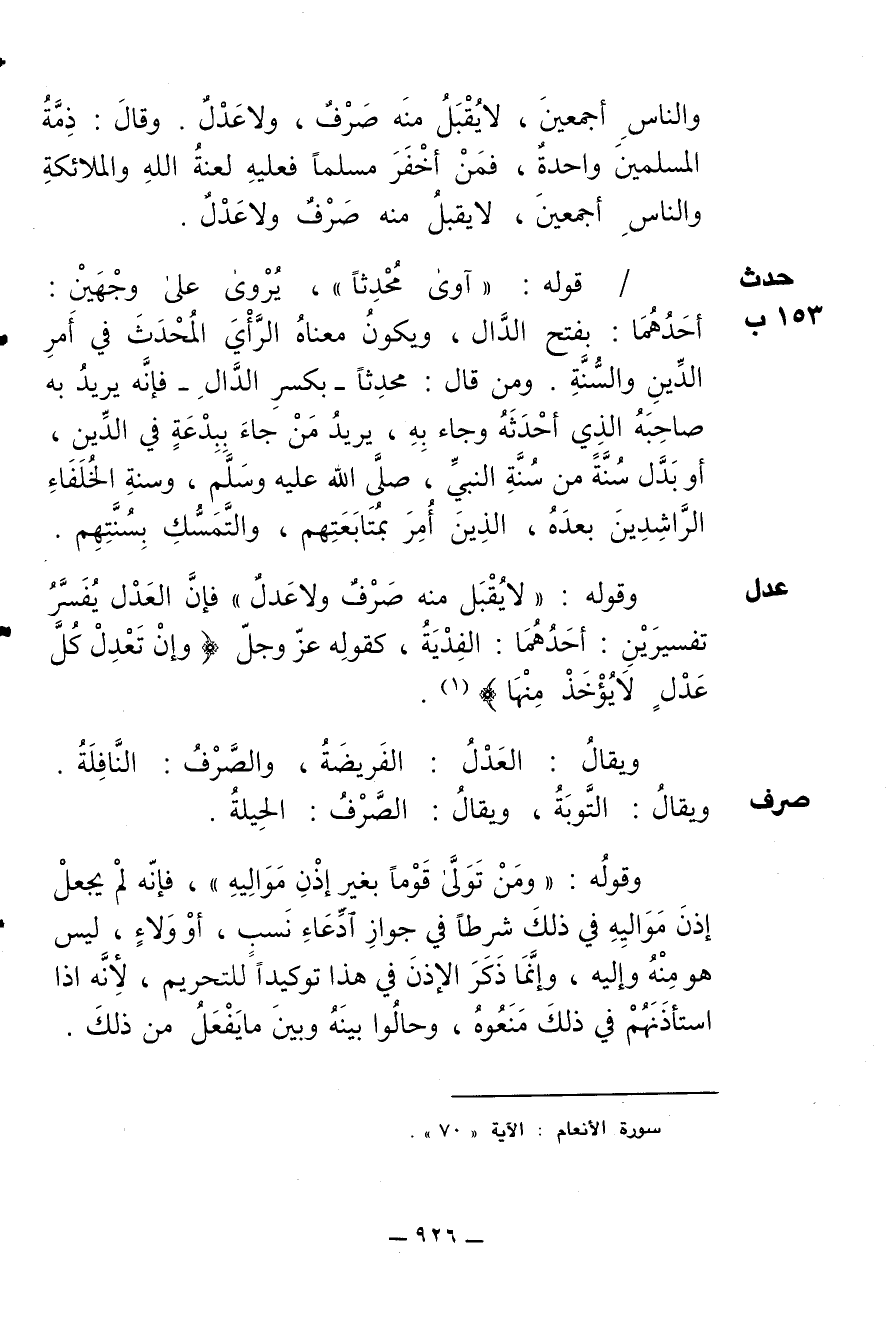 والناسِ أجمعينَ ، لايُقْبَلُ منَه صَرْفٌ ، ولاعَدْلٌ . وقالَ : ذِمَّةُ
المسلمينَ واحدةٌ ، فمَنْ أخْفَرَ مسلماً فعليهِ لعنةُ اللهِ والملائكةِ
والناسِ أجمعينَ ، لايقبلُ منه صَرْفٌ ولاعَدْلٌ .
حدث
/ قوله : « آوىٰ مُحْدِثاً » ، يُرْوىٰ علىٰ وجْهَيْنْ :
١٥٣ ب
أحَدُهُمَا : بفتح الدَّال ، ويكونُ معناهُ الرَّأْيَ المُحْدَثَ في أمرِ
الدِّينِ والسُّنَّةِ . ومن قال : محدِثاً ـ بكسرِ الدَّالِ ـ فإنَّه يريدُ به
صاحِبَهُ الذِي أحْدَثَهُ وجاء بِهِ ، يريدُ مَنْ جاءَ بِبِدْعَةٍ في الدِّين ،
أو بَدَّل سُنَّةً من سُنَّةِ النبيِّ ، صلَّى الله عليه وسَلَّم ، وسنةِ الخُلَفَاءِ
الرَّاشِدِينَ بعدَهُ ، الذِينَ أُمِرَ بمُتَابَعَتِهم ، والتَّمَسُّكِ بِسُنَّتِهِم .
عدل
وقوله : « لايُقْبَل منه صَرْفٌ ولاعَدلٌ » فإنَّ العَدْل يُفَسَّرُ
تفسيرَيْنِ : أحَدُهُمَا : الفِدْيَةُ ، كقولِه عزّ وجلّ ﴿ وإنْ تَعْدِلْ كُلَّ
عَدْلٍ لَايُؤْخَذْ مِنْهَا ﴾ (١) .
ويقالُ : العَدْلُ : الفَريضَةُ ، والصَّرْفُ : النَّافِلَةُ .
صرف
ويقالُ : التَّوبَةُ ، ويقالُ : الصَّرْفُ : الحِيلةُ .
وقولُه : « ومَنْ تَوَلَّىٰ قَوْماً بغيرِ إذْنِ مَوَالِيهِ » ، فإنّه لمْ يجعلْ
إذنَ مَوَاليِهِ في ذلكَ شرطاً في جوازِ ٱدِّعَاءِ نَسبٍ ، أوْ وَلاءٍ ، ليس
هو مِنْهُ وإليه ، وإنَّمَا ذَكَرَ الإذنَ في هذا توكيداً للتحريم ، لِأنَّه اذا
استأذَنَهُمْ في ذلكَ مَنَعُوهُ ، وحالُوا بينَهُ وبينَ مايَفْعَلُ من ذلكَ .
سورة الأنعام : الآية « ٧٠ » .
ـ ٩٢٦ ـ